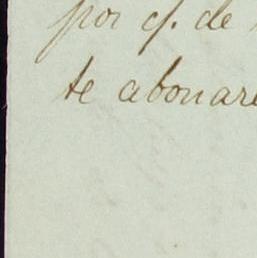 por cf. de
te abonare